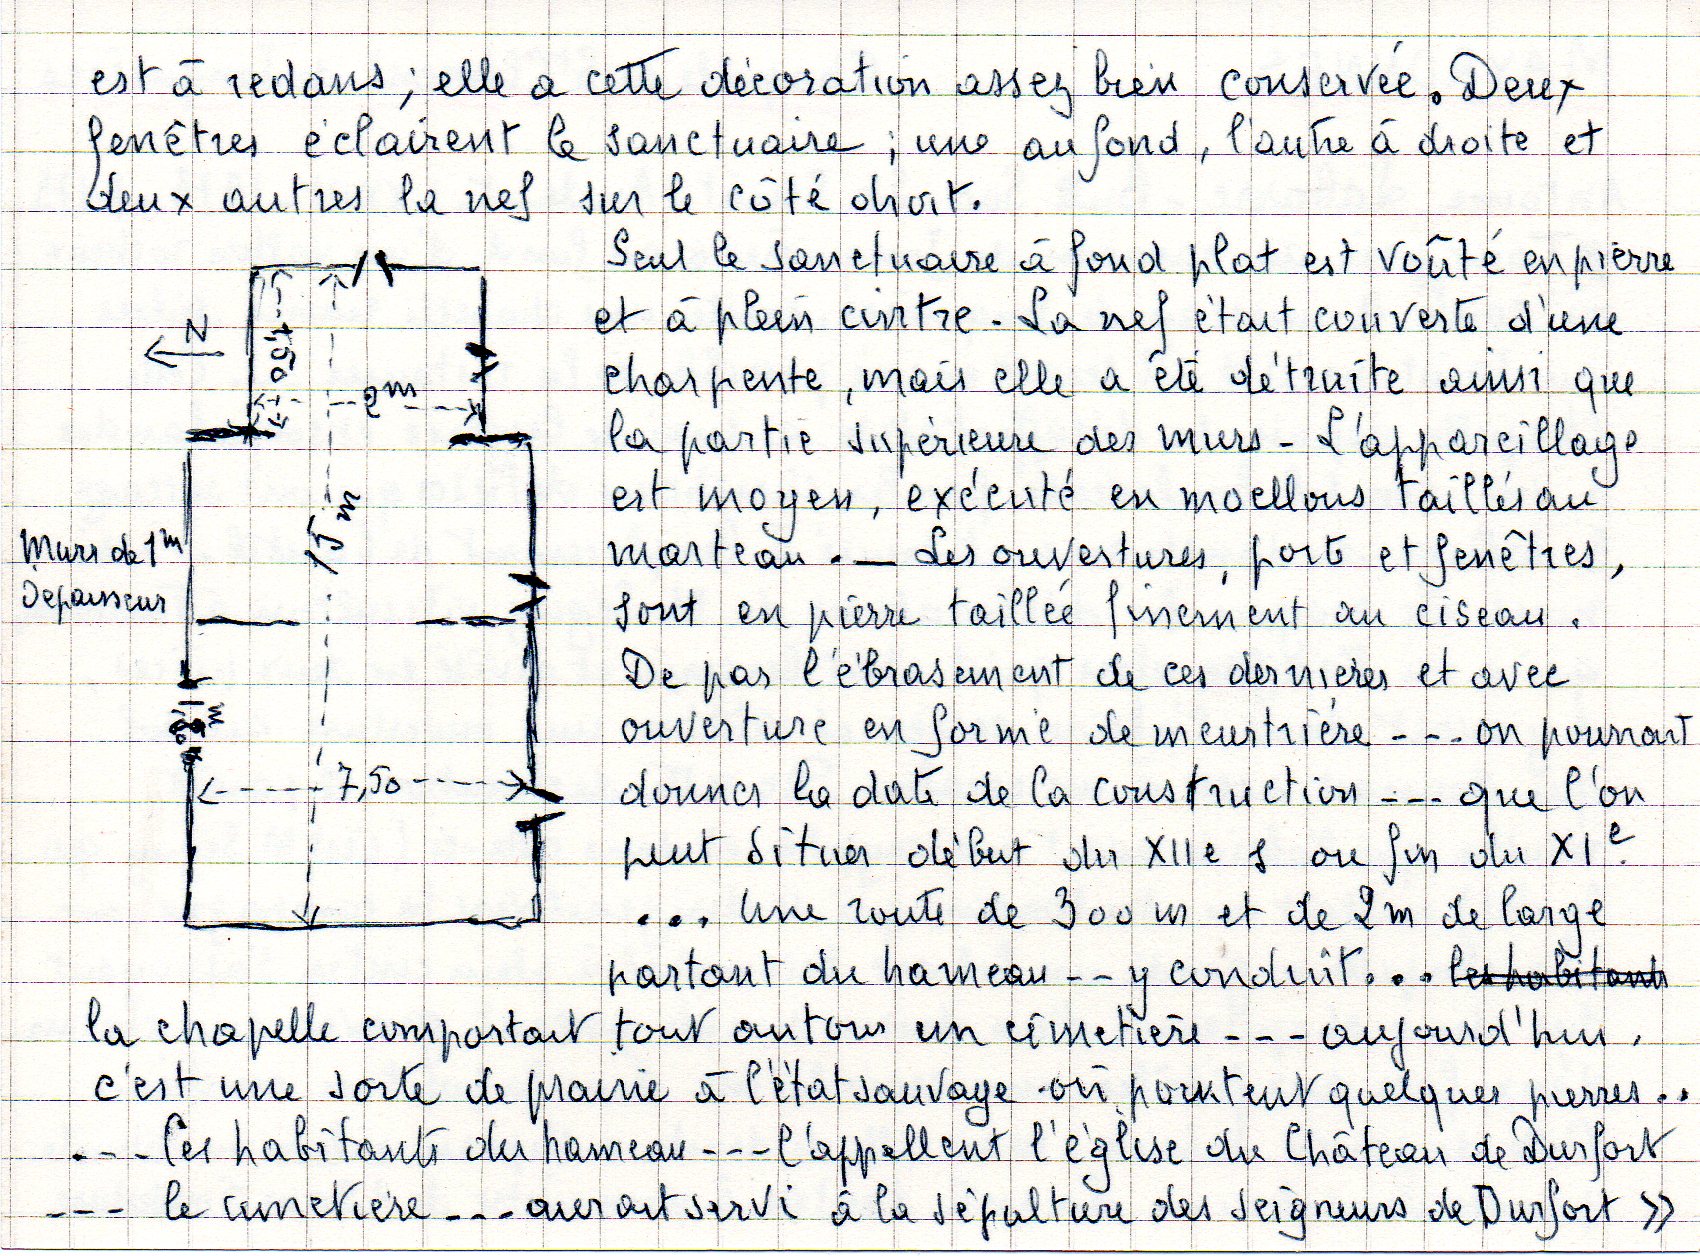 est à redans ; elle a cette décoration assez bien conservée. Deux
fenêtres éclairent le sanctuaire ; une au fond, l'autre à droite et
deux autres la nef sur le côté droit.
Seul le sanctuaire à fond plat est voûté en pierre
et à plein cintre - La nef était couverte d'une
charpente, mais elle a été détruite ainsi que
la partie supérieure des murs - L'appareillage
est moyen, exécuté en moellons taillés au
marteau. — Les ouvertures, porte et fenêtres,
sont en pierre taillée finement au ciseau.
De par l'ébrasement de ces dernières et avec
ouverture en forme de meurtrière --- on pourrait
donner la date de la construction --- que l'on
peut situer début du XIIe s ou fin du XIe.
... Une route de 300 m et de 2m de large
partant du hameau -- y conduit... les habitants
la chapelle comportait tout autour un cimetière --- aujourd'hui,
c'est une sorte de prairie à l'état sauvage où pointent quelques pierres..
.--- Les habitants du hameau --- l'appellent l'église du Château de Durfort
--- le cimetière --- aurait servi à la sépulture des seigneurs de Durfort »
N
1,50
2m
15m
Murs de 1m
D'épaisseur
1,80m
7,50